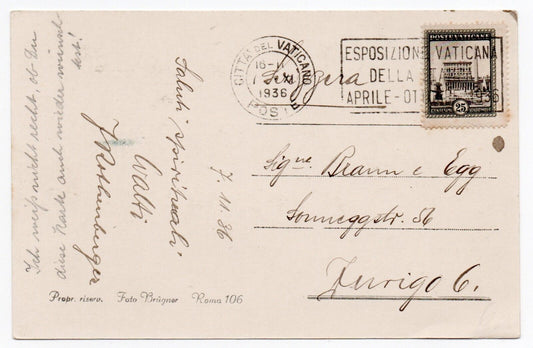 Ich weiß nicht recht, ob Du
diese Karte auch wieder wünsch-
test!
Saluti spirituali
Walti
J Rothenberger
7. III 36
CITTÀ DEL VATICANO
16-17
1936
POSTE
ESPOSIZIONE VATICANA
DELLA STAMPA
APRILE-OTT 1936
POSTE VATICANA
25
Svizzera
Sigⁿᵉ Braun e Egg
Sonneggstr. 56
Zurigo 6.
Propr. riserv. Foto Brügner Roma 106